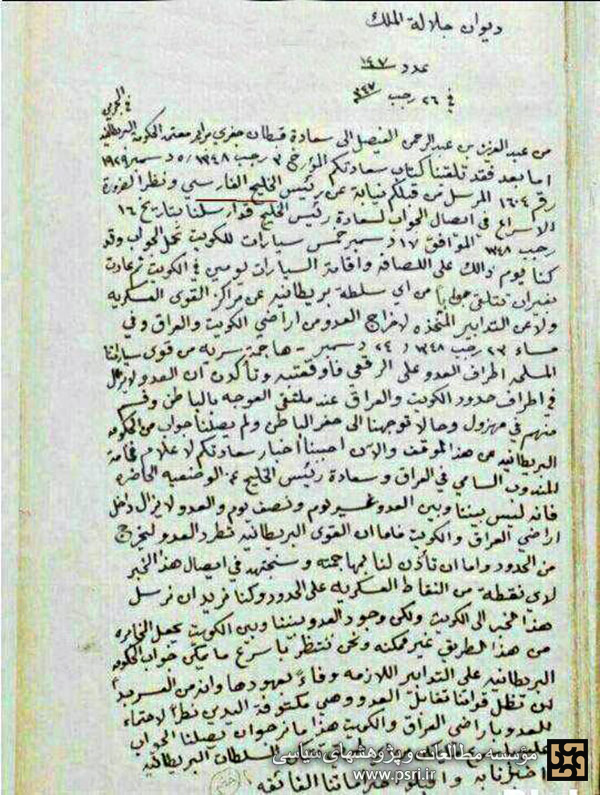 ديوان جلالة الملك
عدد ١٤٧
في ٢٦ رجب
من عبد العزيز بن عبد الرحمن الفيصل الى سعادة قبطان معتمد الحكومة البريطانية
اما بعد فقد تلقينا كتاب سعادتكم المؤرخ ٣ رجب ١٣٤٨ / ٥ دسمبر ١٩٢٩
رقم ١٦٠٤ المرسل من قبلكم نيابة عن رئيس الخليج الفارسي ونظرا لضرورة
الاسراع في ايصال الجواب لسعادة رئيس الخليج قد ارسلنا بتاريخ ١٦
رجب ١٣٤٨ الموافق ١٧ دسمبر خمس سيارات للكويت تحمل الجواب وقد
كنا يوم ذالك على اللصافه واقامة السيارات يومين في الكويت ثم عادت
بغير ان نتلقى جوابا من اي سلطة بريطانيه عن مراكز القوى العسكريه
ولا عن التدابير المتخذه لاخراج العدو من اراضي الكويت والعراق وفي
مساء ٢٣ رجب ١٣٤٨ / ٢٤ دسمبر - هاجمة سريه من قوى سياراتنا
المسلحه اطراف العدو على الرقعي فاوقعت به وتأكدنا ان العدو لا يزال
في اطراف حدود الكويت والعراق عند ملتقى العوجه بالباطن وقسم
منهم في مهزول وحالا توجهنا الى حفر الباطن ولم يصلنا جواب من الحكومه
البريطانيه عن هذا الموقف والآن احببنا اخبار سعادتكم لاعلام فخامة
المندوب السامي في العراق وسعادة رئيس الخليج عن الوضعيه الحاضره
فانه ليس بيننا وبين العدو غير يوم ونصف يوم والعدو لا يزال داخل
اراضي العراق والكويت فاما ان القوى البريطانيه تطرد العدو ليخرج
من الحدود واما ان تأذن لنا بمهاجمته وسنجتهد في ايصال هذا الخبر
لاي نقطة من النقاط العسكريه على الحدود وكنا نريد ان نرسل
هذا الخبر الى الكويت ولكن وجود العدو بيننا وبين الكويت يجعل المخابره
من هذا الطريق غير ممكنه ونحن ننتظر باسرع ما يمكن جواب الحكومة
البريطانيه على التدابير اللازمه وفاءً لعهودها وانه من
لن تظل قواتنا تقاتل العدو وهي مكتوفة اليدين نظرا لاحتماء
العدو باراضي العراق والكويت هذا ما نرجو ان يصلنا الجواب
السلطات البريطانيه
الفائقه
مؤسسه مطالعات و پژوهشهای سیاسی
www.psri.ir